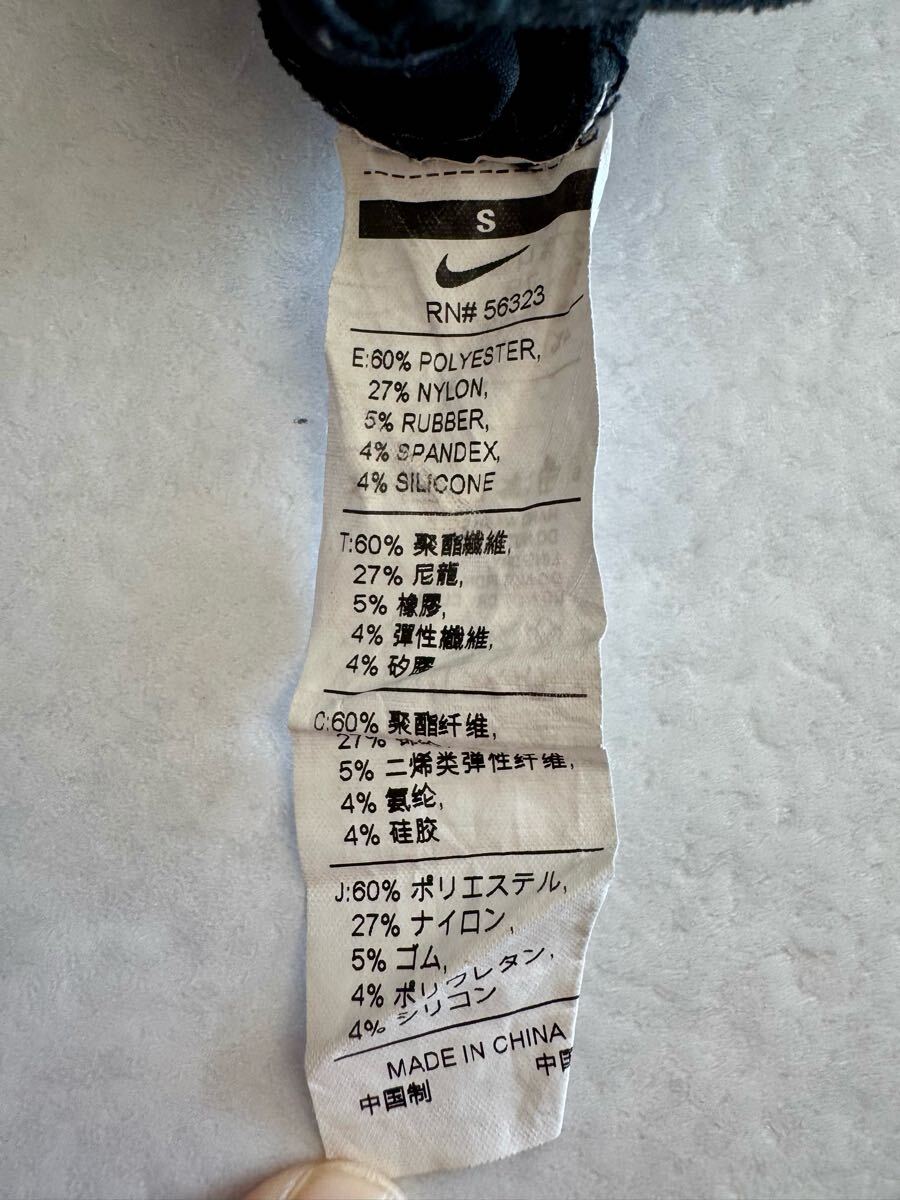 S
RN# 56323
E:60% POLYESTER,
27% NYLON,
5% RUBBER,
4% SPANDEX,
4% SILICONE
T:60% 聚酯纖維,
27% 尼龍,
5% 橡膠,
4% 彈性纖維,
4% 矽膠
C:60% 聚酯纤维,
27%
5% 二烯类弹性纤维,
4% 氨纶,
4% 硅胶
J:60% ポリエステル,
27% ナイロン,
5% ゴム,
4% ポリウレタン,
4% シリコン
MADE IN CHINA
中国制 中国